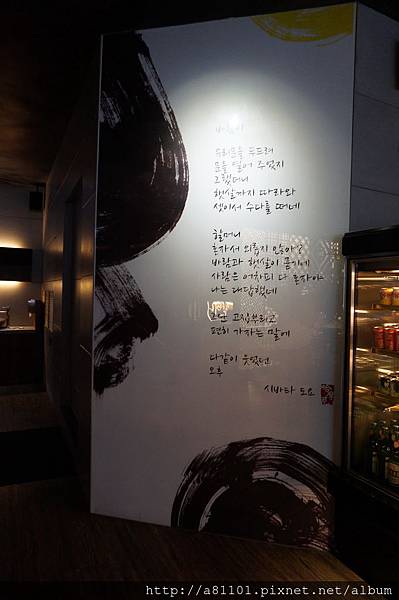 바람이
유리문을 두드려
문을 열어 주었지
그랬더니
햇살까지 따라와
셋이서 수다를 떠네
할머니
혼자서 외롭지 않아?
바람과 햇살이 묻기에
사람은 어차피 다 혼자야
나는 대답했네
그만 고집부리고
편히 가자는 말에
다같이 웃었던
오후
시바타 도요
http://a81101.pixnet.net/album